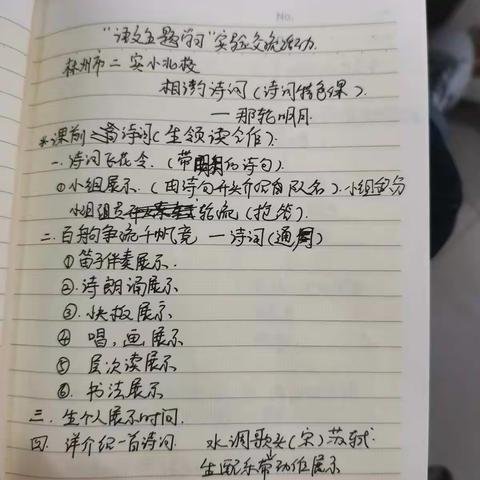 "语文主题学习"实验交流活动
林州市二实小北校
相约诗词(诗词特色课).
—那轮明月.
*课前诵诗词(生领读合作).
一.诗词飞花令.(带明月的诗句).
①小组展示.(由诗句开头介绍自队名).小组
小组组员轮流(抢答).
二.百舸争流千帆竞 —诗词(通关)
①笛子伴奏展示.
②.诗朗诵展示
③.快板展示
④ 唱,画展示
⑤ 层次读展示
⑥.书法展示
三.生个人展示时间.
四 详介绍一首诗词 水调歌头(宋)苏轼
生配乐带动作展示